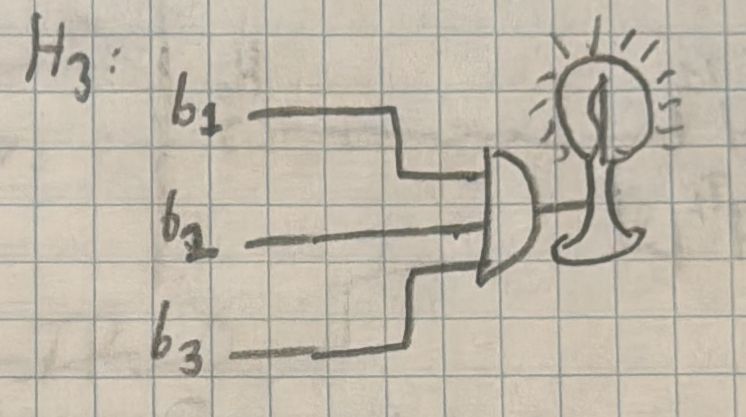 H₃:
b₁
b₂
b₃